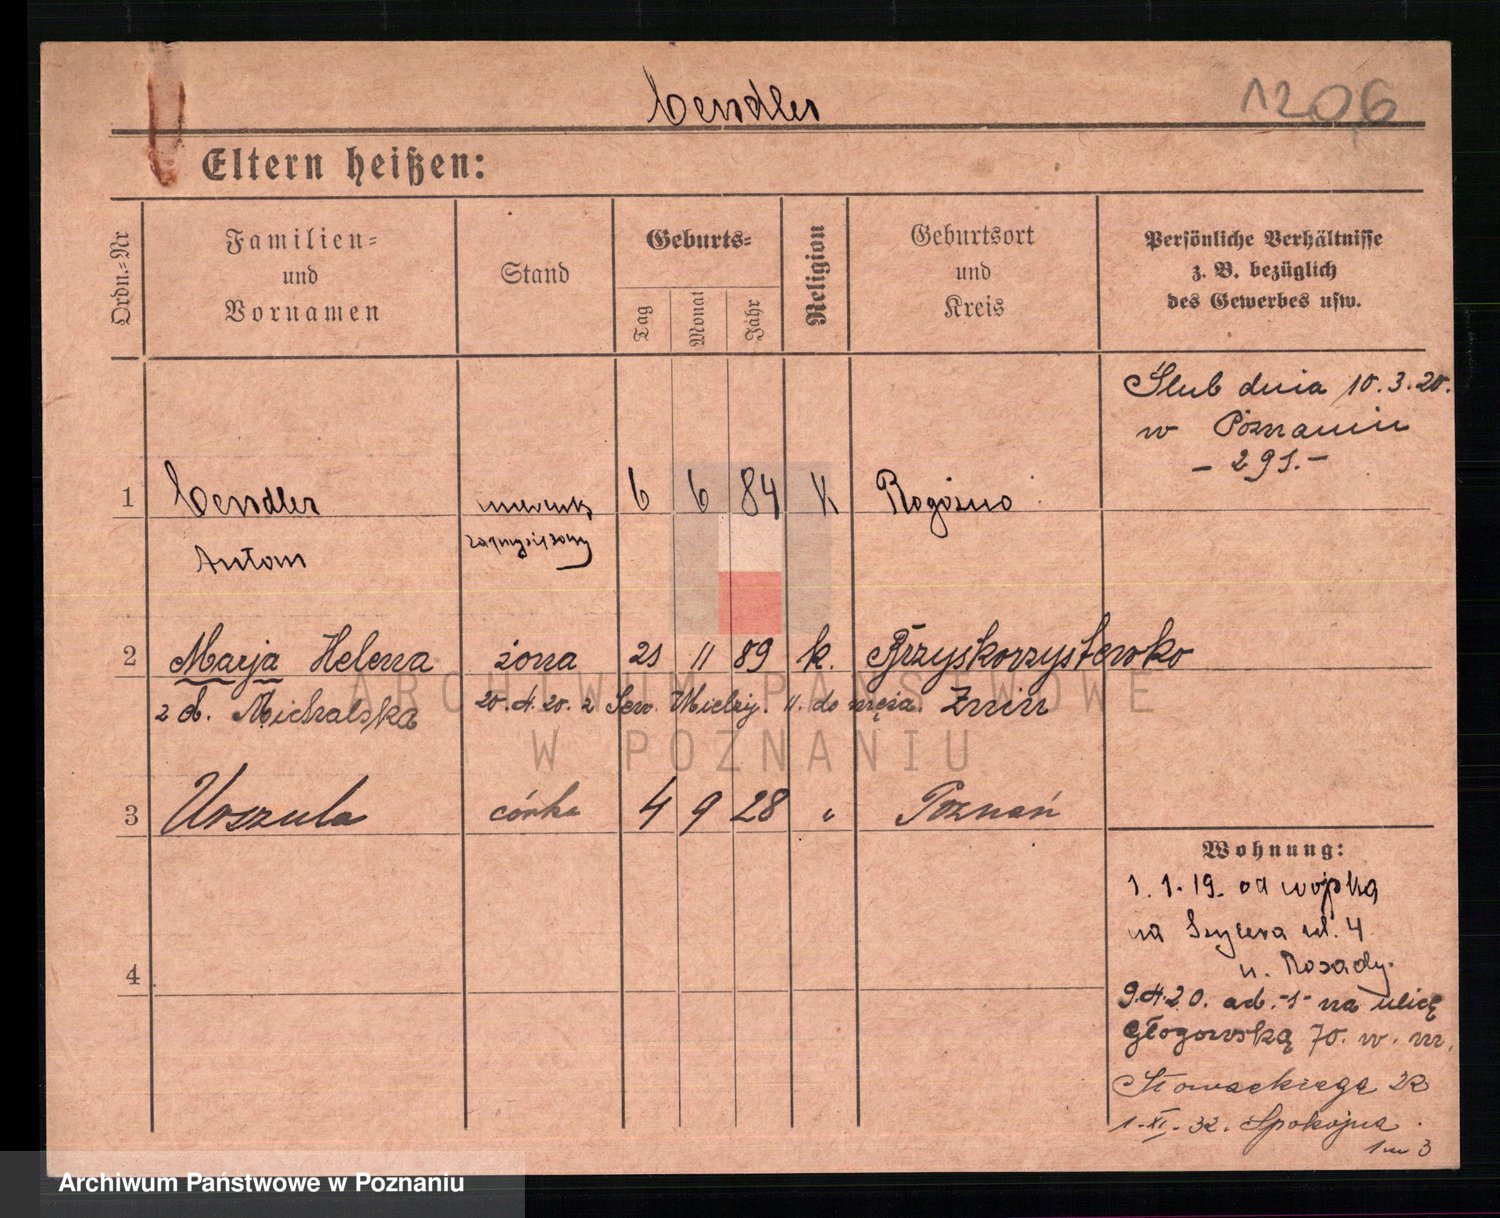 Cendler
1206
Eltern heißen:
Ordn.-Nr
Familien-
und
Vornamen
Stand
Geburts-
Tag
Monat
Jahr
Religion
Geburtsort
und
Kreis
Persönliche Verhältnisse
z. B. bezüglich
des Gewerbes usw.
Ślub dnia 10.3.20.
w Poznaniu
- 291. -
1 Cendler 6 6 84 K Rogoźno
Antoni
2 Marja Helena żona 21 11 89 k. Przyskorzystewko
z d. Michalska 20.4.20. z Sew. Mielży. 11. do męża. Żnin
3 Urszula córka 4 9 28 " Poznań
4
Wohnung:
1.1.19. od wojska
na Szycera ul. 4
u. Rosady.
9.4.20. ad.-1- na ulicę
Głogowską 70. w. m.
Słowackiego 22
1-XI-32. Spokojna
1 m 3
ARCHIWUM PAŃSTWOWE
W POZNANIU
Archiwum Państwowe w Poznaniu